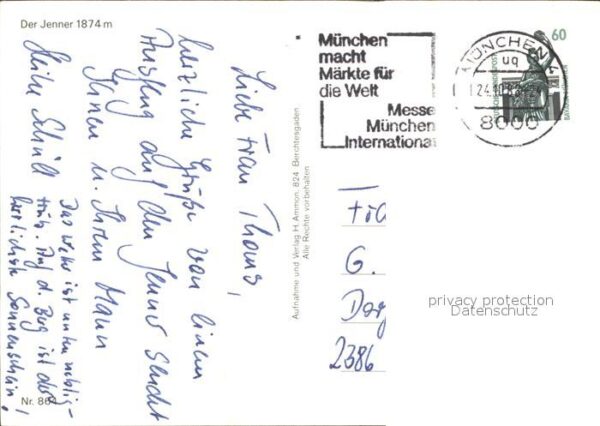 Der Jenner 1874 m
Liebe Frau Thoms,
herzliche Grüße von einem
Ausflug auf den Jenner sendet
Ihnen u. Ihrem Mann
Das Wetter ist unten neblig-
trüb. Auf d. Berg ist der
herrlichste Sonnenschein!
Nr. 864
Aufnahme und Verlag H. Ammon, 824 Berchtesgaden
Alle Rechte vorbehalten
München
macht
Märkte für
die Welt
Messe
München
International
MÜNCHEN
uq
24.10.
8000
60
G.
2386
privacy protection
Datenschutz